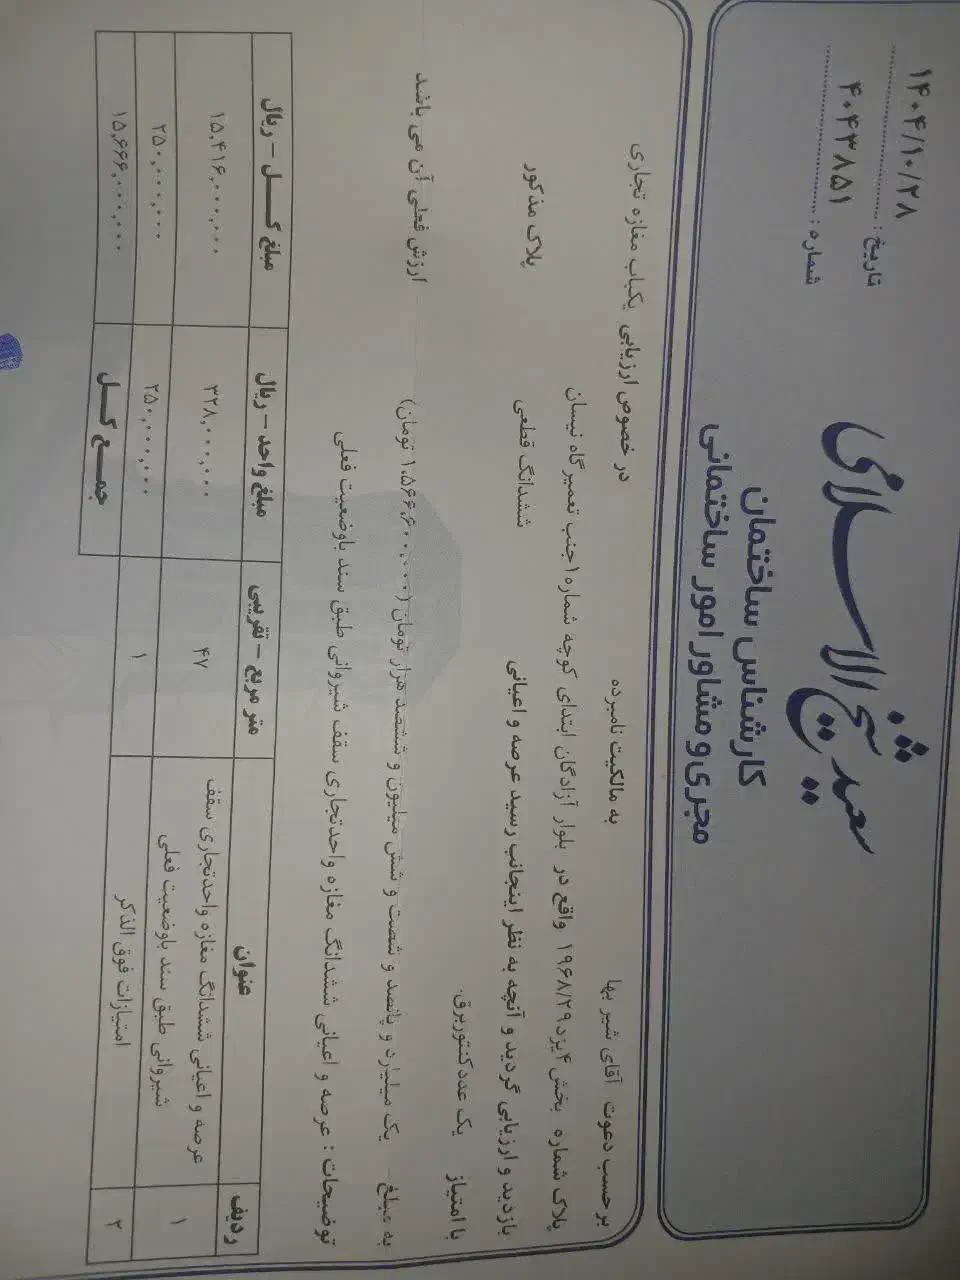 سعید شیخ الاسلامی
کارشناس ساختمان
مجری و مشاور امور ساختمانی
تاریخ: ۱۴۰۴/۱۰/۲۸
شماره: ۴۰۴۳۸۵۱
برحسب دعوت آقای شیر بها به مالکیت نامبرده در خصوص ارزیابی یکباب مغازه تجاری
پلاک شماره ۱۹۶۸/۲۹ بخش ۴یزد واقع در بلوار آزادگان ابتدای کوچه شماره ۱ جنب تعمیرگاه نیسان
بازدید و ارزیابی گردید و آنچه به نظر اینجانب رسید عرصه و اعیانی ششدانگ قطعی پلاک مذکور
با امتیاز یک عدد کنتوربرق.
به مبلغ یک میلیارد و پانصد و شصت و شش میلیون و ششصد هزار تومان (۱،۵۶۶،۶۰۰،۰۰۰ تومان) ارزش فعلی آن می باشد
توضیحات : عرصه و اعیانی ششدانگ مغازه واحدتجاری سقف شیروانی طبق سند باوضعیت فعلی
ردیف عنوان متر مربع - تقریبی مبلغ واحد - ریال مبلغ کـــل - ریال
۱ عرصه و اعیانی ششدانگ مغازه واحدتجاری سقف ۴۷ ۳۲۸،۰۰۰،۰۰۰ ۱۵،۴۱۶،۰۰۰،۰۰۰
شیروانی طبق سند باوضعیت فعلی
۲ امتیازات فوق الذکر ۱ ۲۵۰،۰۰۰،۰۰۰ ۲۵۰،۰۰۰،۰۰۰
جمـــع کـــل ۱۵،۶۶۶،۰۰۰،۰۰۰